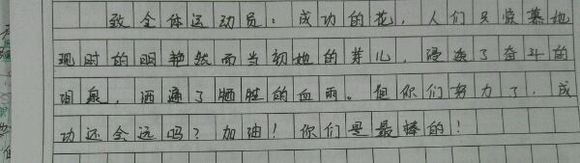 致全体运动员：成功的花，人们只惊慕她
现时的明艳然而当初她的芽儿，浸透了奋斗的
泪泉，洒遍了牺牲的血雨。但你们努力了，成
功还会远吗？加油！你们是最棒的！